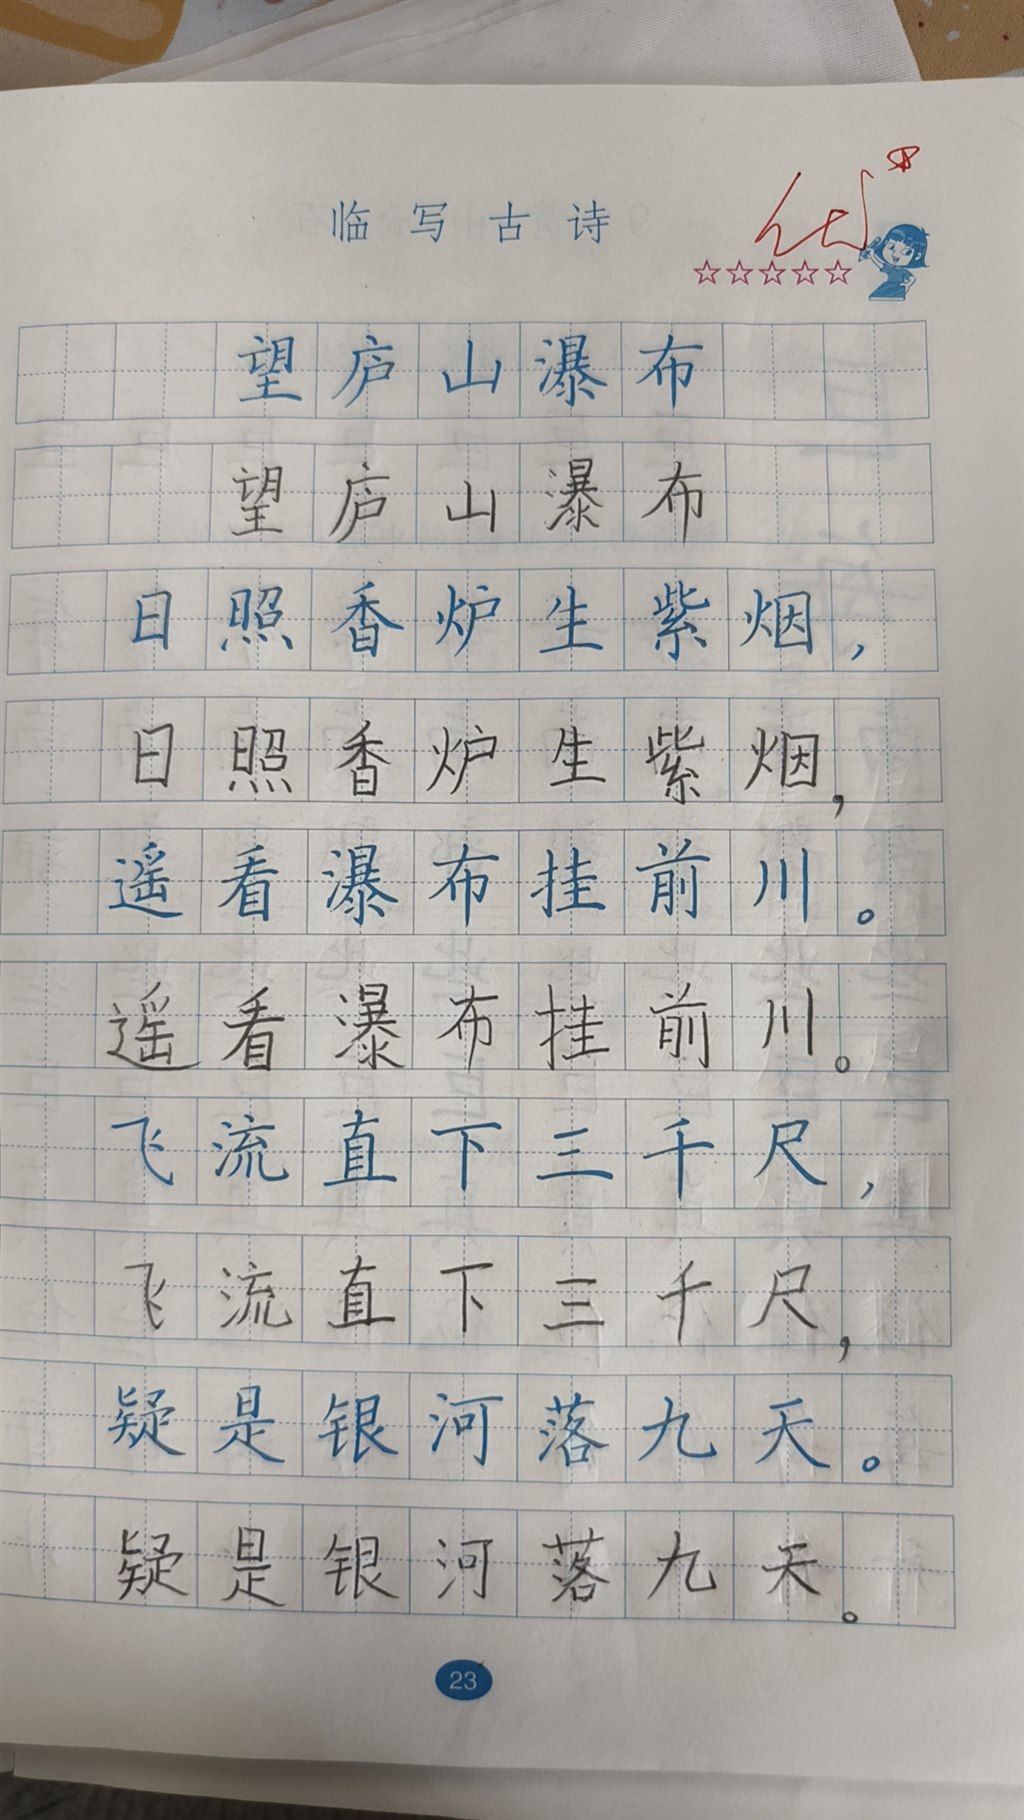 临写古诗
望庐山瀑布
望庐山瀑布
日照香炉生紫烟，
日照香炉生紫烟，
遥看瀑布挂前川。
遥看瀑布挂前川。
飞流直下三千尺，
飞流直下三千尺，
疑是银河落九天。
疑是银河落九天。
23